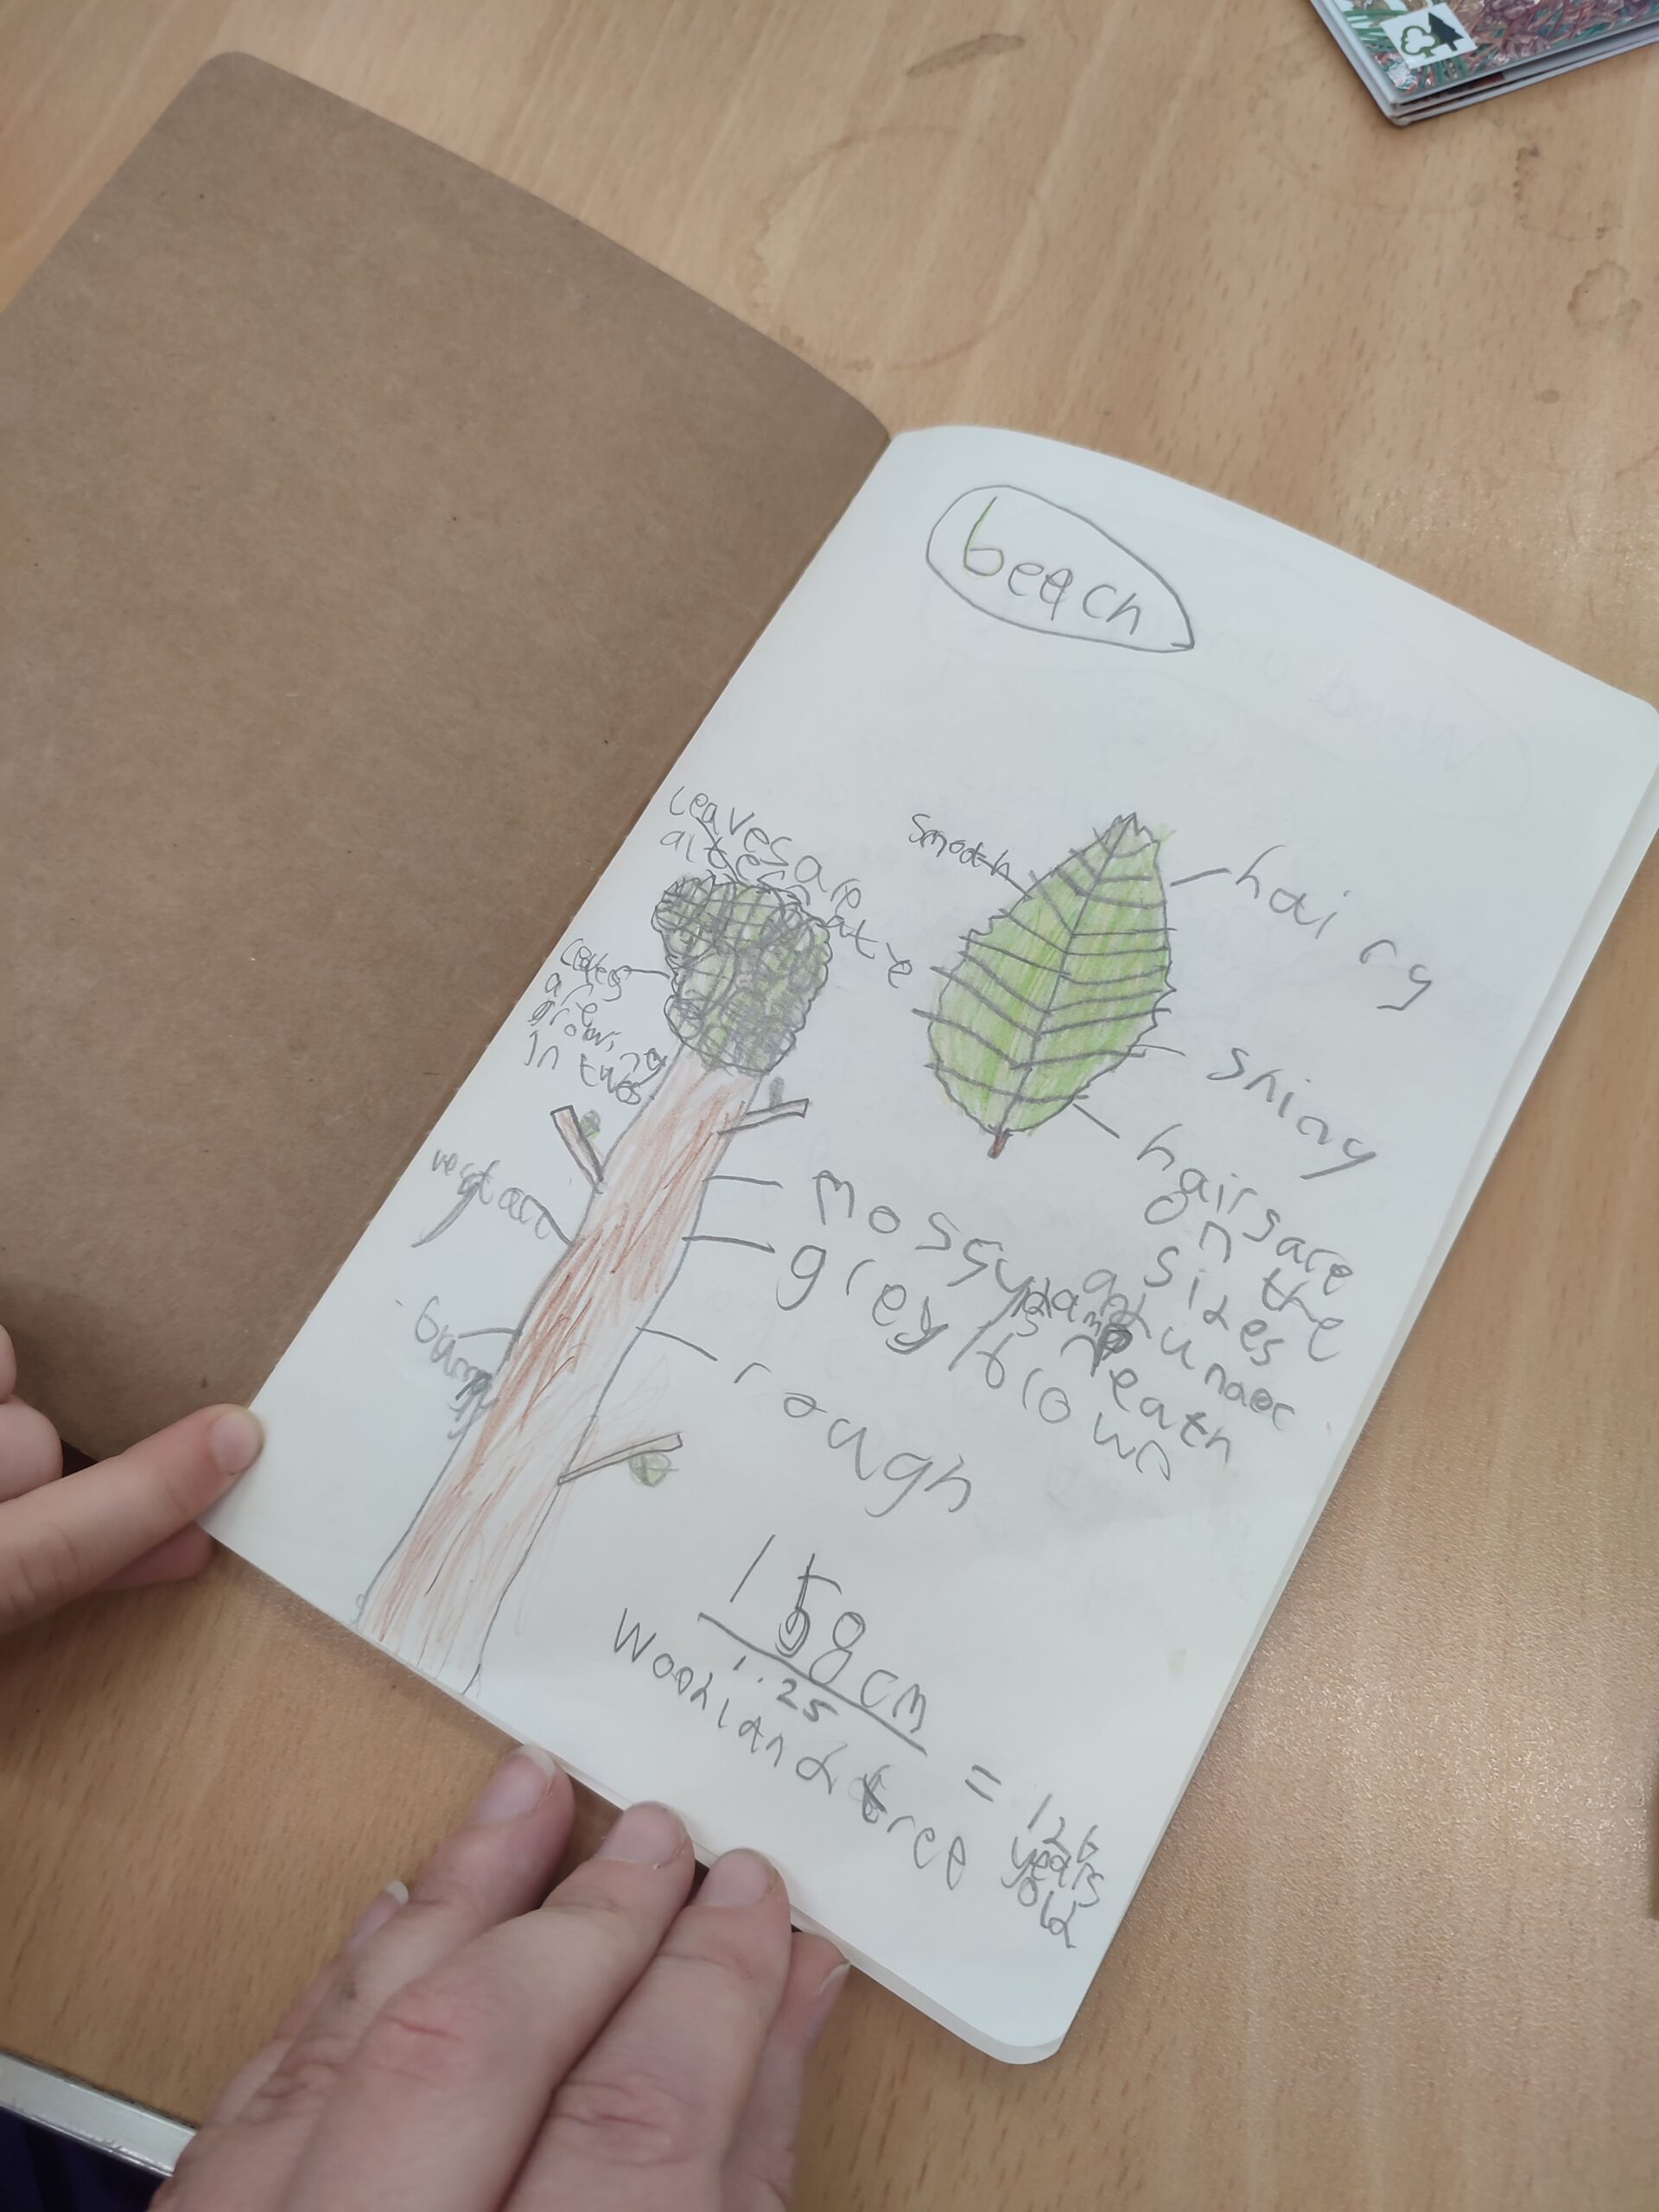 beach
leaves are
alternate
smooth
hairy
leaves
are
growing
in twos
shiny
hairs are
on the
sides
and under
neath
mossy
damp
grey/brown
bump
rough
158cm
1.25
= 126
years
old
Woodland tree